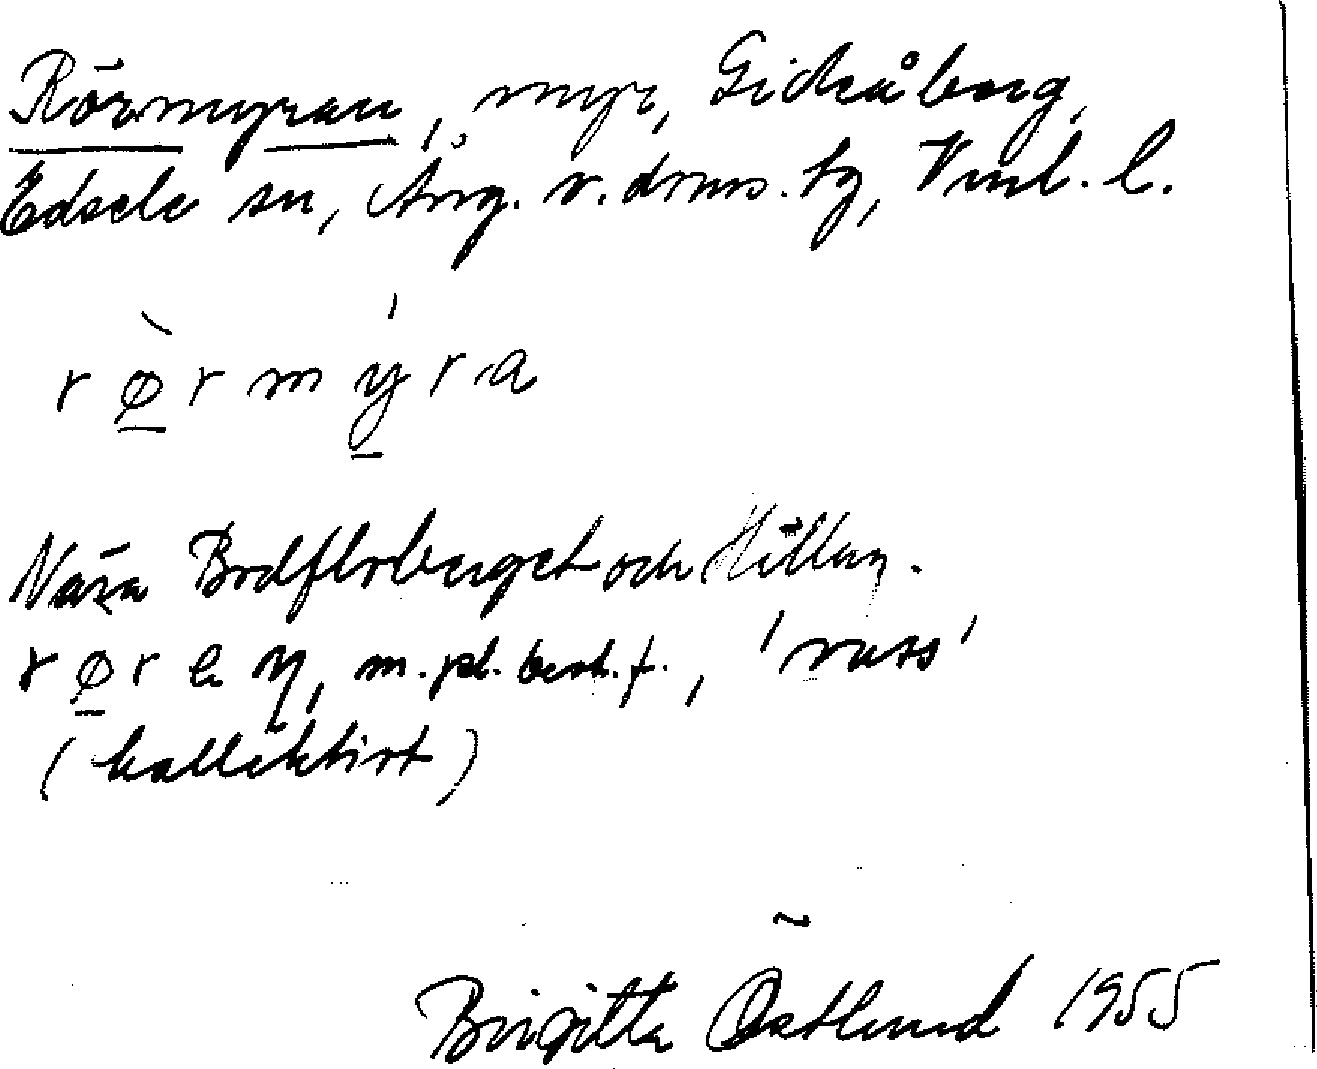 Rörmyran, myr, Gideåberg,
Edsele sn, Ång. v. doms. tg, Vnl. l.
r ø̱̀ r m ý̱ r a
Nära Brdflrberget och Hällan.
r ø̱ r e ŋ, m. pl. best. f., 'vass'
(kollektivt)
Birgitta Östlund 1955